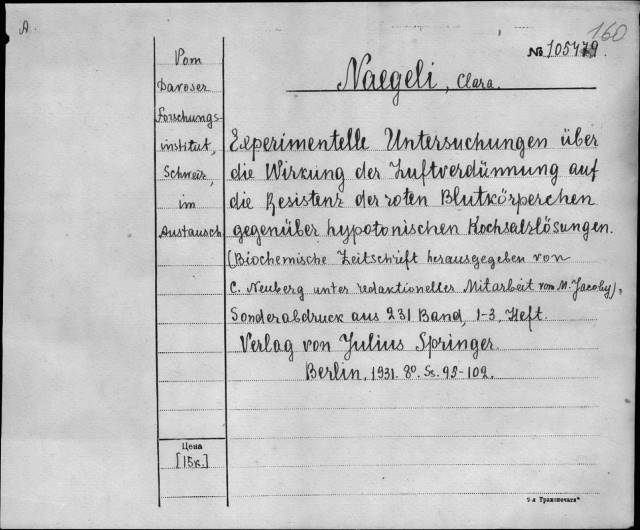 A
160
№ 105479.
Naegeli, Clara.
Vom
Davoser
Forschungs-
institut,
Schweiz,
im
Austausch
Experimentelle Untersuchungen über
die Wirkung der Luftverdünnung auf
die Resistenz der roten Blutkörperchen
gegenüber hypotonischen Kochsalzlösungen.
(Biochemische Zeitschrift herausgegeben von
C. Neuberg unter redaktioneller Mitarbeit von M. Jacoby),
Sonderabdruck aus 231 Band, 1-3, Heft.
Verlag von Julius Springer
Berlin, 1931. 8°. Ss. 92-102.
Цена
[15к.]
9-я Транспечати"